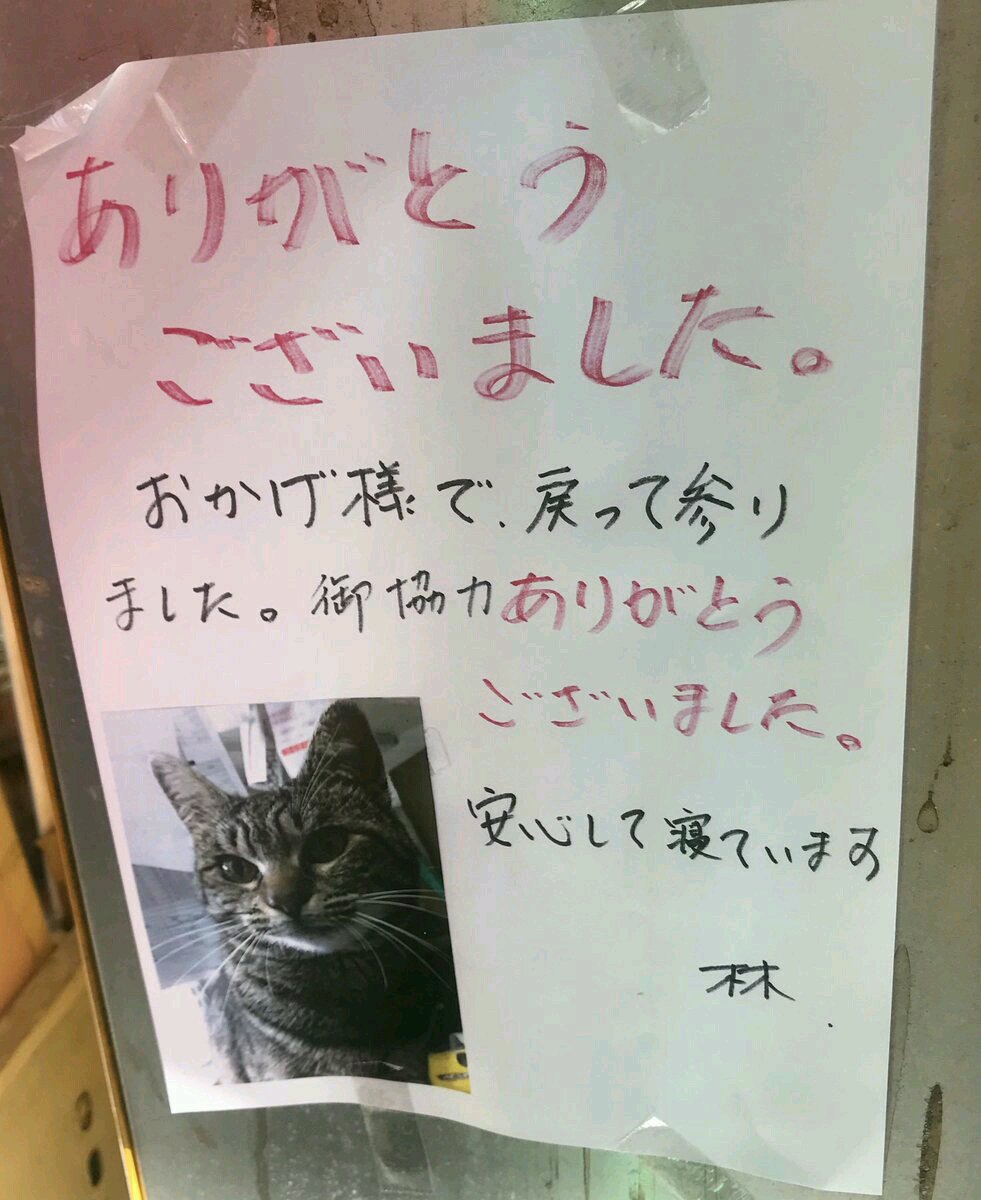 ありがとう
ございました。
おかげ様で、戻って参り
ました。御協力ありがとう
ございました。
安心して寝ています
林